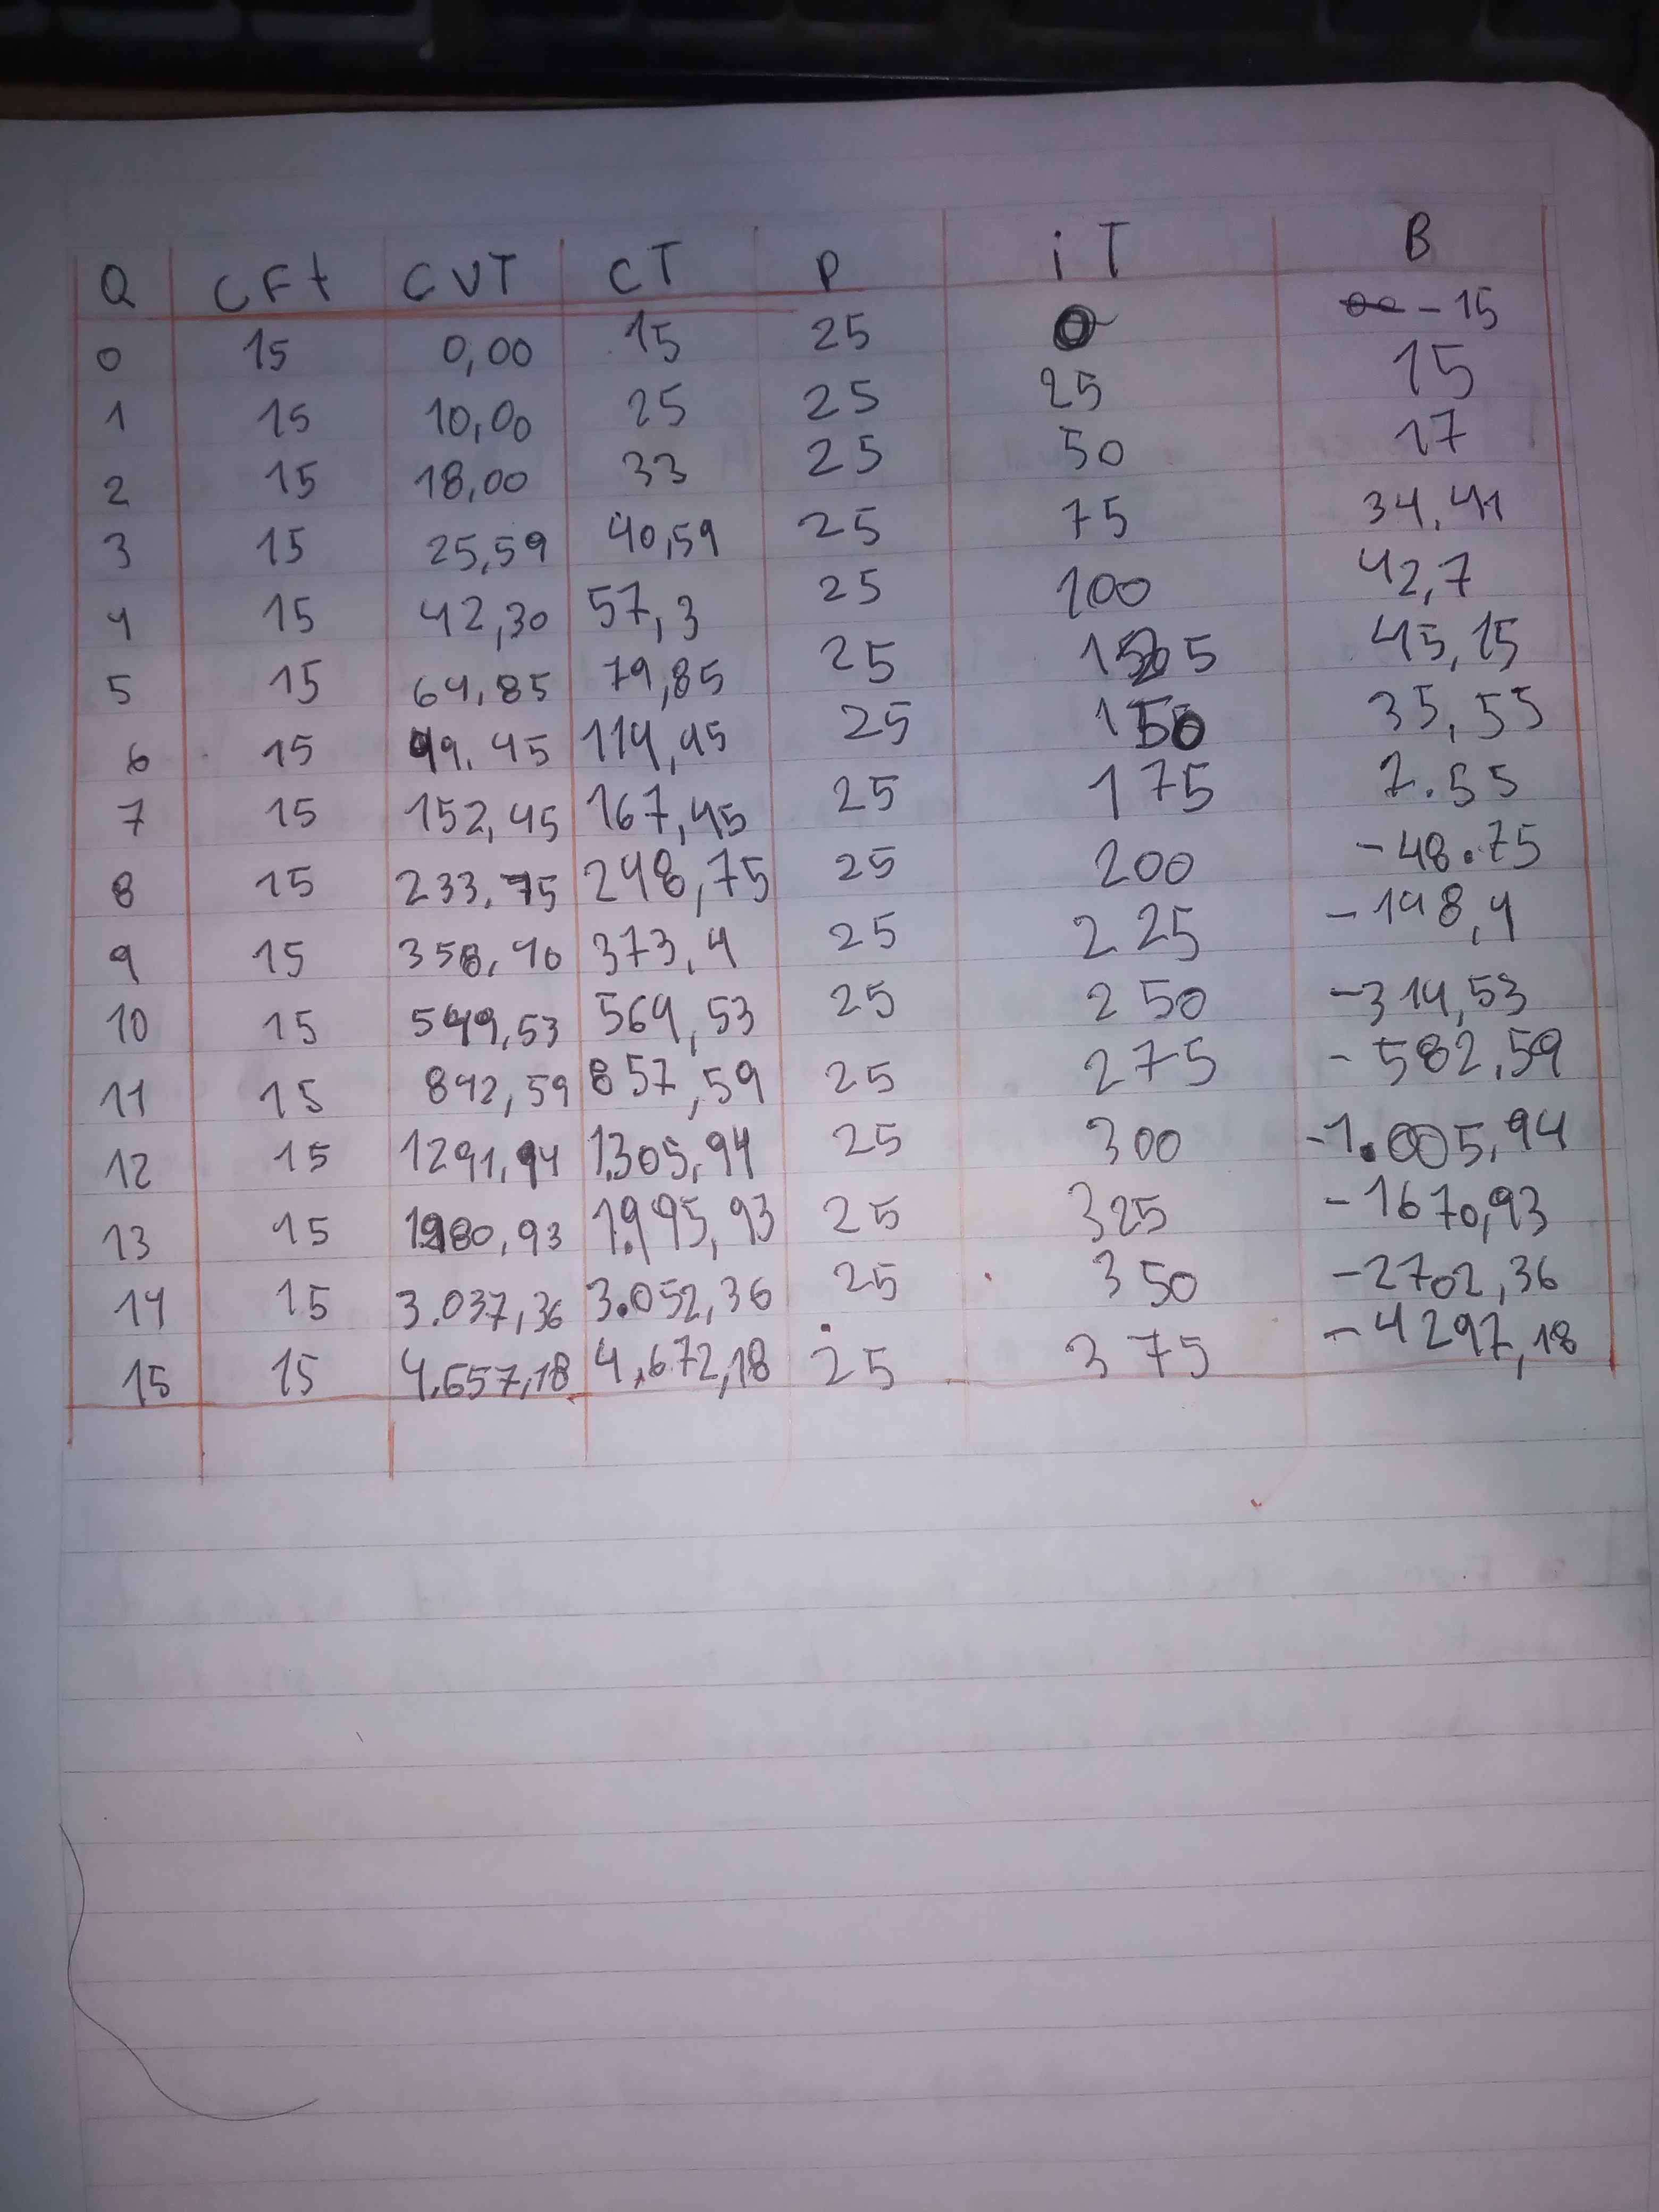 Q CFt CVT CT P iT B
0 15 0,00 15 25 0 -15
1 15 10,00 25 25 25 15
2 15 18,00 33 25 50 17
3 15 25,59 40,59 25 75 34,41
4 15 42,30 57,3 25 100 42,7
5 15 64,85 79,85 25 125 45,15
6 15 99,45 114,45 25 150 35,55
7 15 152,45 167,45 25 175 7.55
8 15 233,75 248,75 25 200 -48.75
9 15 358,40 373,4 25 225 -148,4
10 15 549,53 564,53 25 250 -314,53
11 15 842,59 857,59 25 275 -582,59
12 15 1291,94 1.305,94 25 300 -1.005,94
13 15 1980,93 1.995,93 25 325 -1670,93
14 15 3.037,36 3.052,36 25 350 -2702,36
15 15 4.657,18 4.672,18 25 375 -4297,18